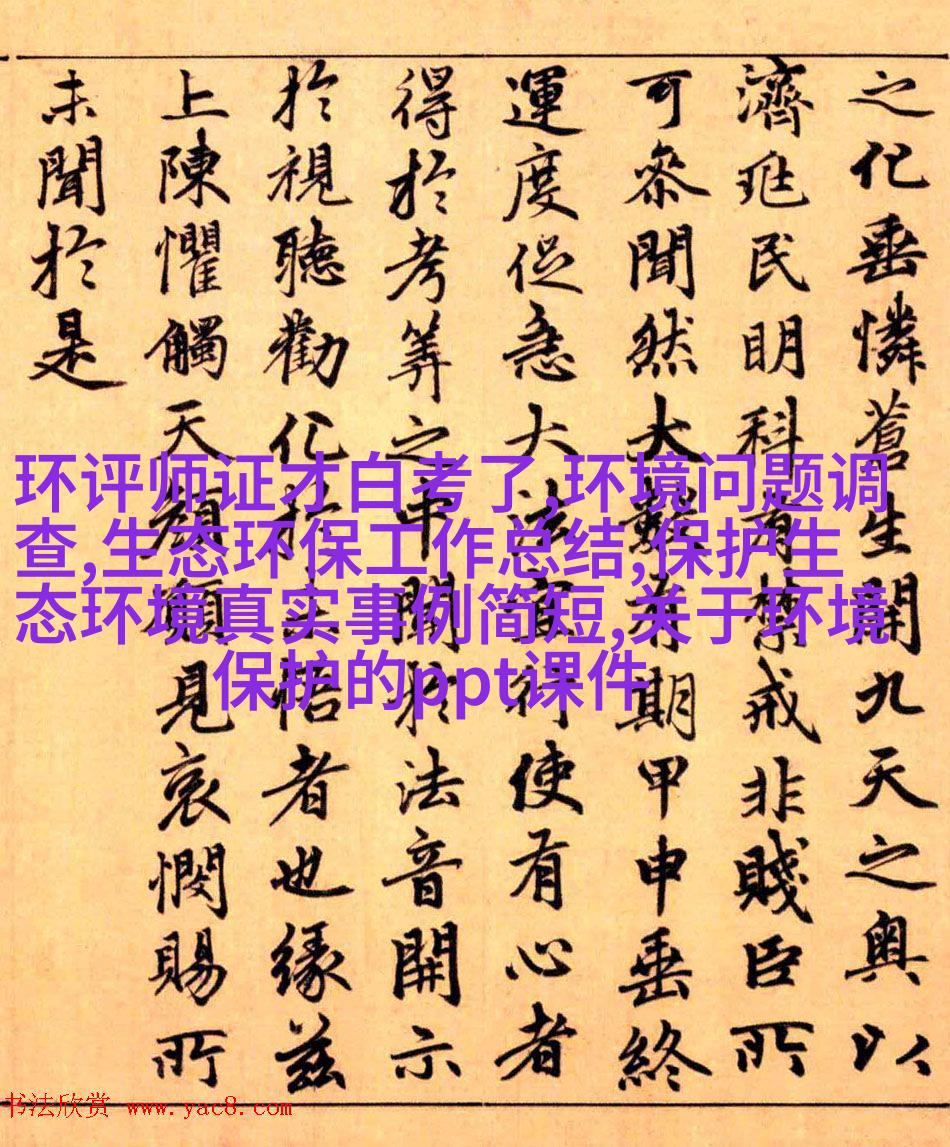 之化垂憐蒼生開九天之奧以
濟兆民明科有禁戒非賤臣所
可參聞然大難有期甲申垂終
運度促急大法宜行使有心者
得於考筭之中聞於法音開示
於視聽勸化於未悟者也緣茲
上陳懼觸天顏願見哀憫賜所
未聞於是
环评师证才白考了,环境问题调
查,生态环保工作总结,保护生
态环境真实事例简短,关于环境
保护的ppt课件
书法欣赏 www.yac8.com